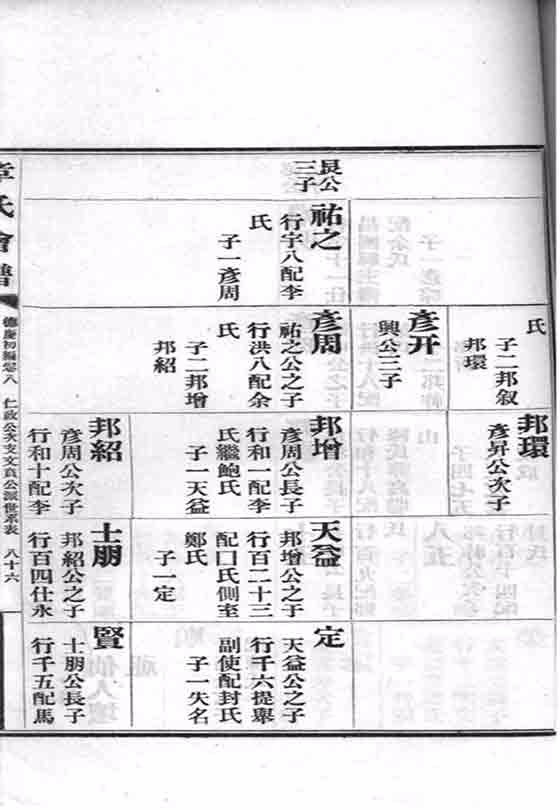 艮公
三子
祐之
行字八配李
氏
子一彥周
氏
子二邦叙
邦環
彥开
興公三子
彥周
祐之公之子
行洪八配余
氏
子二邦增
邦紹
邦環
彥昇公次子
邦增
彥周公長子
行和一配李
氏繼鮑氏
子一天益
邦紹
彥周公次子
行和十配李
天益
邦增公之子
行百二十三
配囗氏側室
鄭氏
子一定
士朋
邦紹公之子
行百四仕永
定
天益公之子
行千六提舉
副使配封氏
子一失名
賢
士朋公長子
行千五配馬
章氏會譜
德慶初編卷八
仁政公次支文員公派世系表
八十六